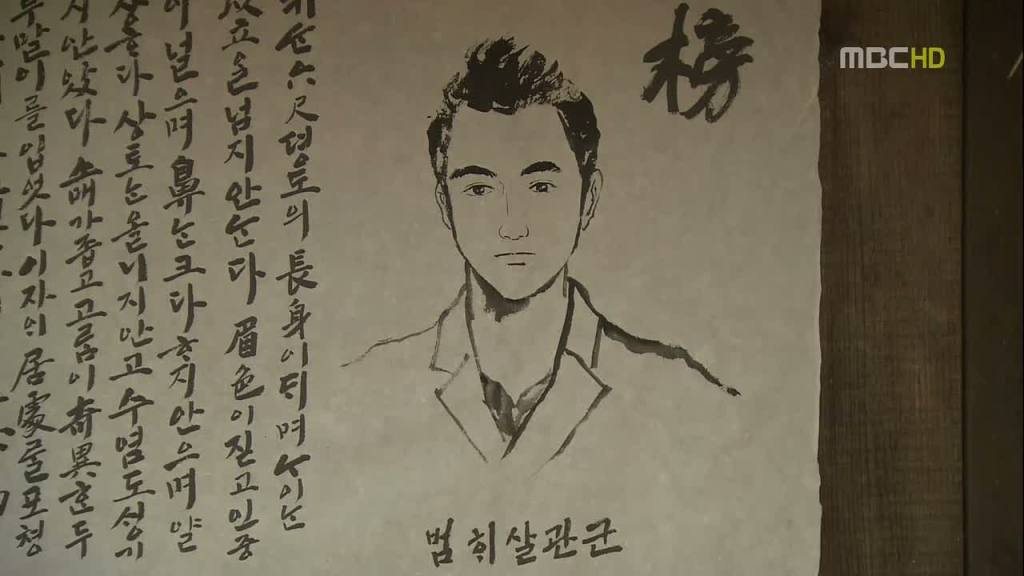 榜
키는 六尺 뎡도의 長身이되며 나이는
을 넘지안는다 眉色이 진고 인중
이 널으며 鼻는 크다 흐지 안으며 얄
상다 상토는 올니지 안고 수염도 성기
지 안앗다 소매가 좁고 고름이 奇異흔 두
루말이를 입엇다 이자의 居處를 포청
군관살ᄒᆡ범
MBC HD